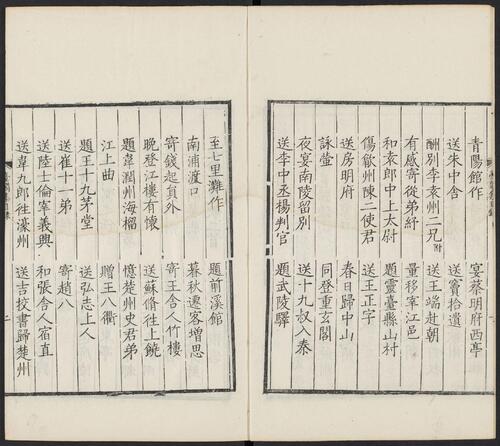 青陽館作 宴蔡明府西亭
送朱中舍 送竇拾遺
酬别李袁州二兄附 送王端赴朝
有感寄後弟紓 量移宰江邑
和袁郎中上太尉 題靈臺縣山村
傷歙州陳二使君 送王正字
送房明府 春日歸中山
詠螢 同登重玄閣
夜宴南陵留别 送十九叔入秦
送李中丞楊判官 題武陵驛
至七里灘作 題前溪館
南浦渡口 暮秋遷客增思
寄錢起員外 寄王舍人竹樓
晚登江樓有懷 送蘇脩往上饒
題韋潤州海榴 憶楚州史君弟
江上曲 贈王八衢
題王十九茅堂 送弘志上人
送崔十一弟 寄趙八
送陸士倫宰義興 和張舍人宿直
送韋九郎往濠州 送吉校書歸楚州